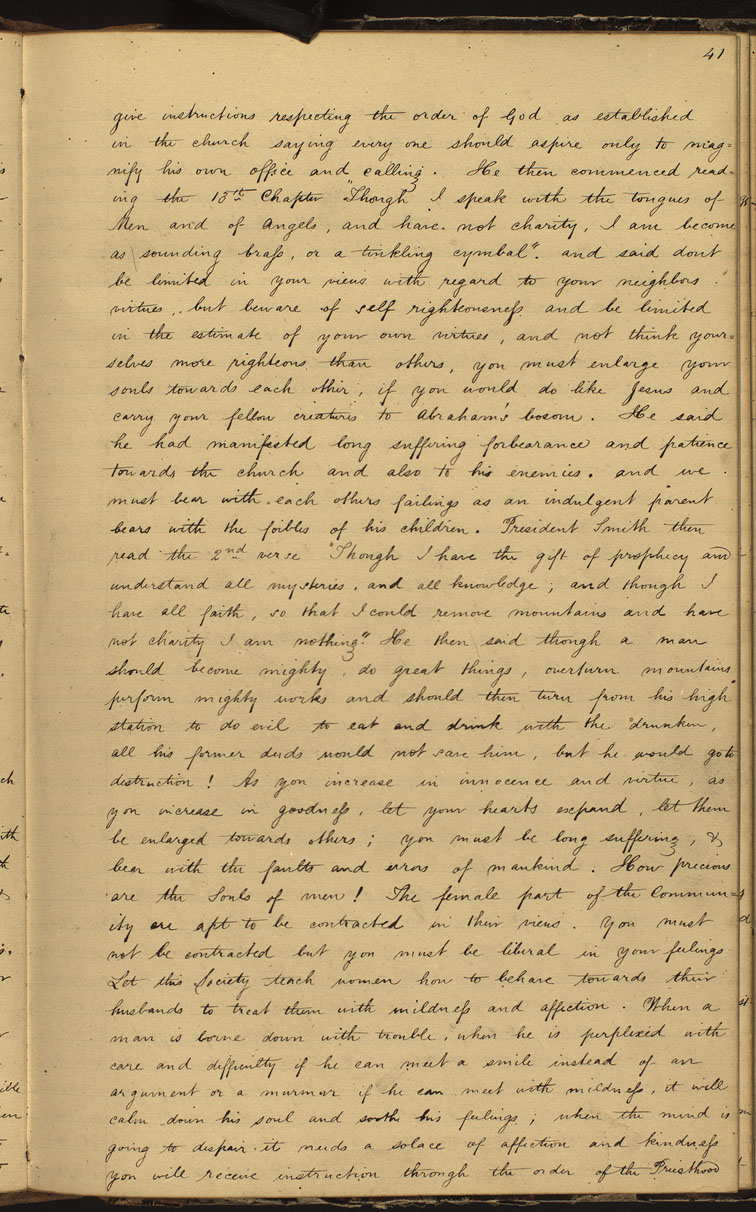 41
give instructions respecting the order of God as established
in the church saying every one should aspire only to mag=
nify his own office and calling. He then commenced read-
ing the 13th Chapter "Though I speak with the tongues of
Men and of Angels, and have not charity, I am become
as sounding brass, or a tinkling cymbal". and said dont
be limited in your views with regard to your neighbors
virtues, but beware of self righteousness and be limited
in the estimate of your own virtues, and not think your=
selves more righteous than others, you must enlarge your
souls towards each other, if you would do like Jesus and
carry your fellow creatures to Abraham's bosom. He said
he had manifested long suffering forbearance and patience
towards the church and also to his enemies. and we
must bear with each others failings as an indulgent parent
bears with the foibles of his children. President Smith then
read the 2nd verse "Though I have the gift of prophecy and
understand all mysteries, and all knowledge; and though I
have all faith, so that I could remove mountains and have
not charity I am nothing." He then said though a man
should become mighty, do great things, overturn mountains
perform mighty works and should then turn from his high
station to do evil to eat and drink with the drunken,
all his former deeds would not save him, but he would go to
distruction! As you increase in innocence and virtue, as
you increase in goodness, let your hearts expand, let them
be enlarged towards others; you must be long suffering, &
bear with the faults and errors of mankind. How precious
are the Souls of men! The female part of the Commun-
ity are apt to be contracted in their views. You must
not be contracted but you must be liberal in your feelings
Let this Society teach women how to behave towards their
husbands to treat them with mildness and affection. When a
man is borne down with trouble, when he is perplexed with
care and difficulty if he can meet a smile instead of an
argument or a murmur if he can meet with mildness, it will
calm down his soul and sooth his feelings; when the mind is
going to despair it needs a solace of affection and kindness
you will receive instruction through the order of the Priesthood